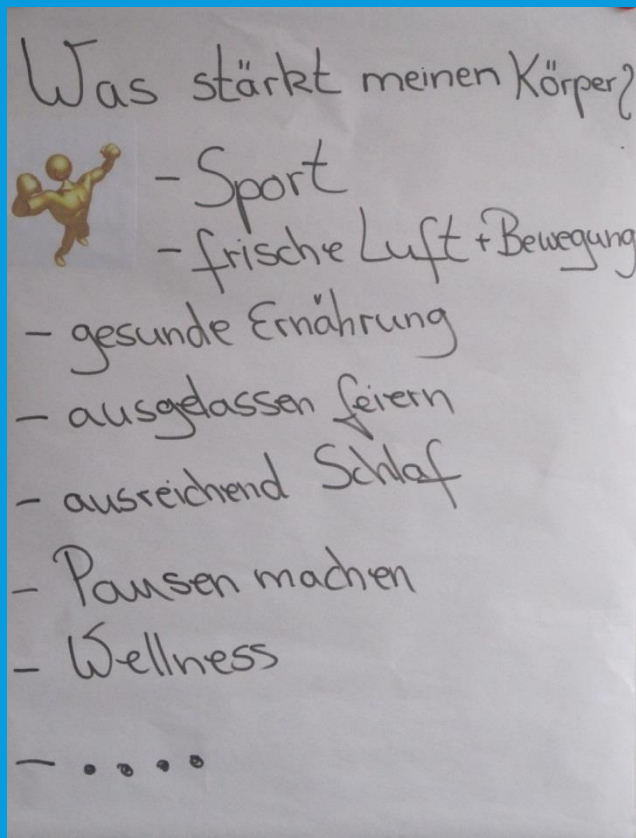 Was stärkt meinen Körper?
- Sport
- frische Luft + Bewegung
- gesunde Ernährung
- ausgelassen feiern
- ausreichend Schlaf
- Pausen machen
- Wellness
- ....